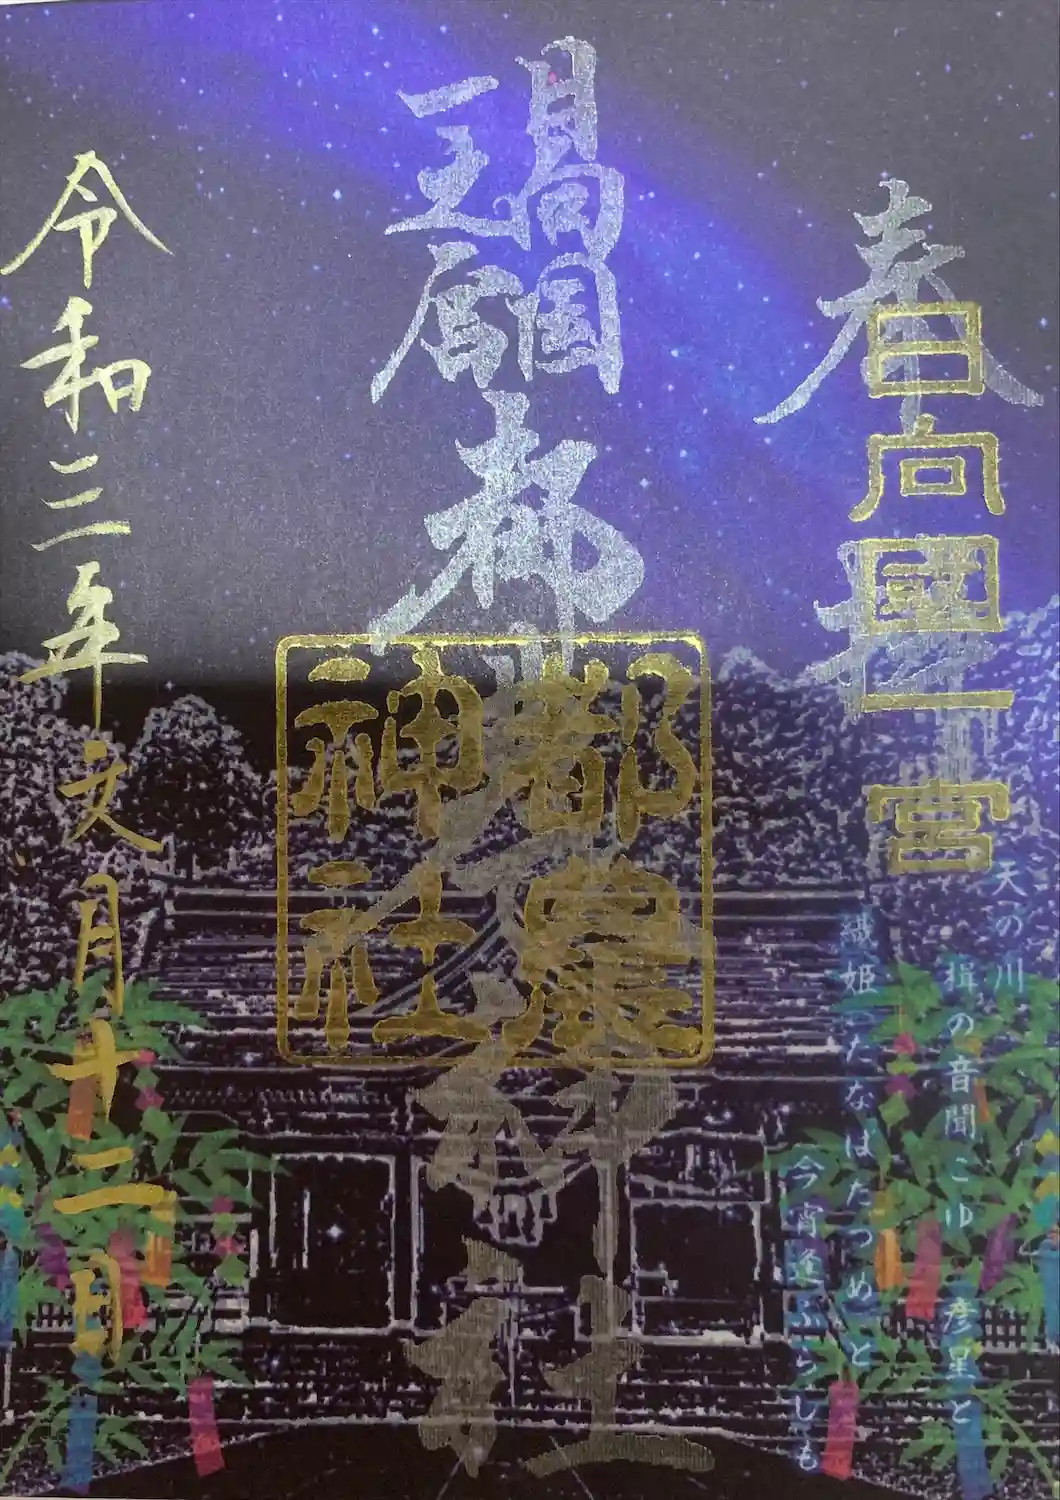 奉拝
日向國一宮
日向国
一之宮
都農神社
都農
神社
令和三年文月十二日
天の川
楫の音聞こゆ 彦星と
織姫(たなばたつめ)と
今宵逢ふらしも